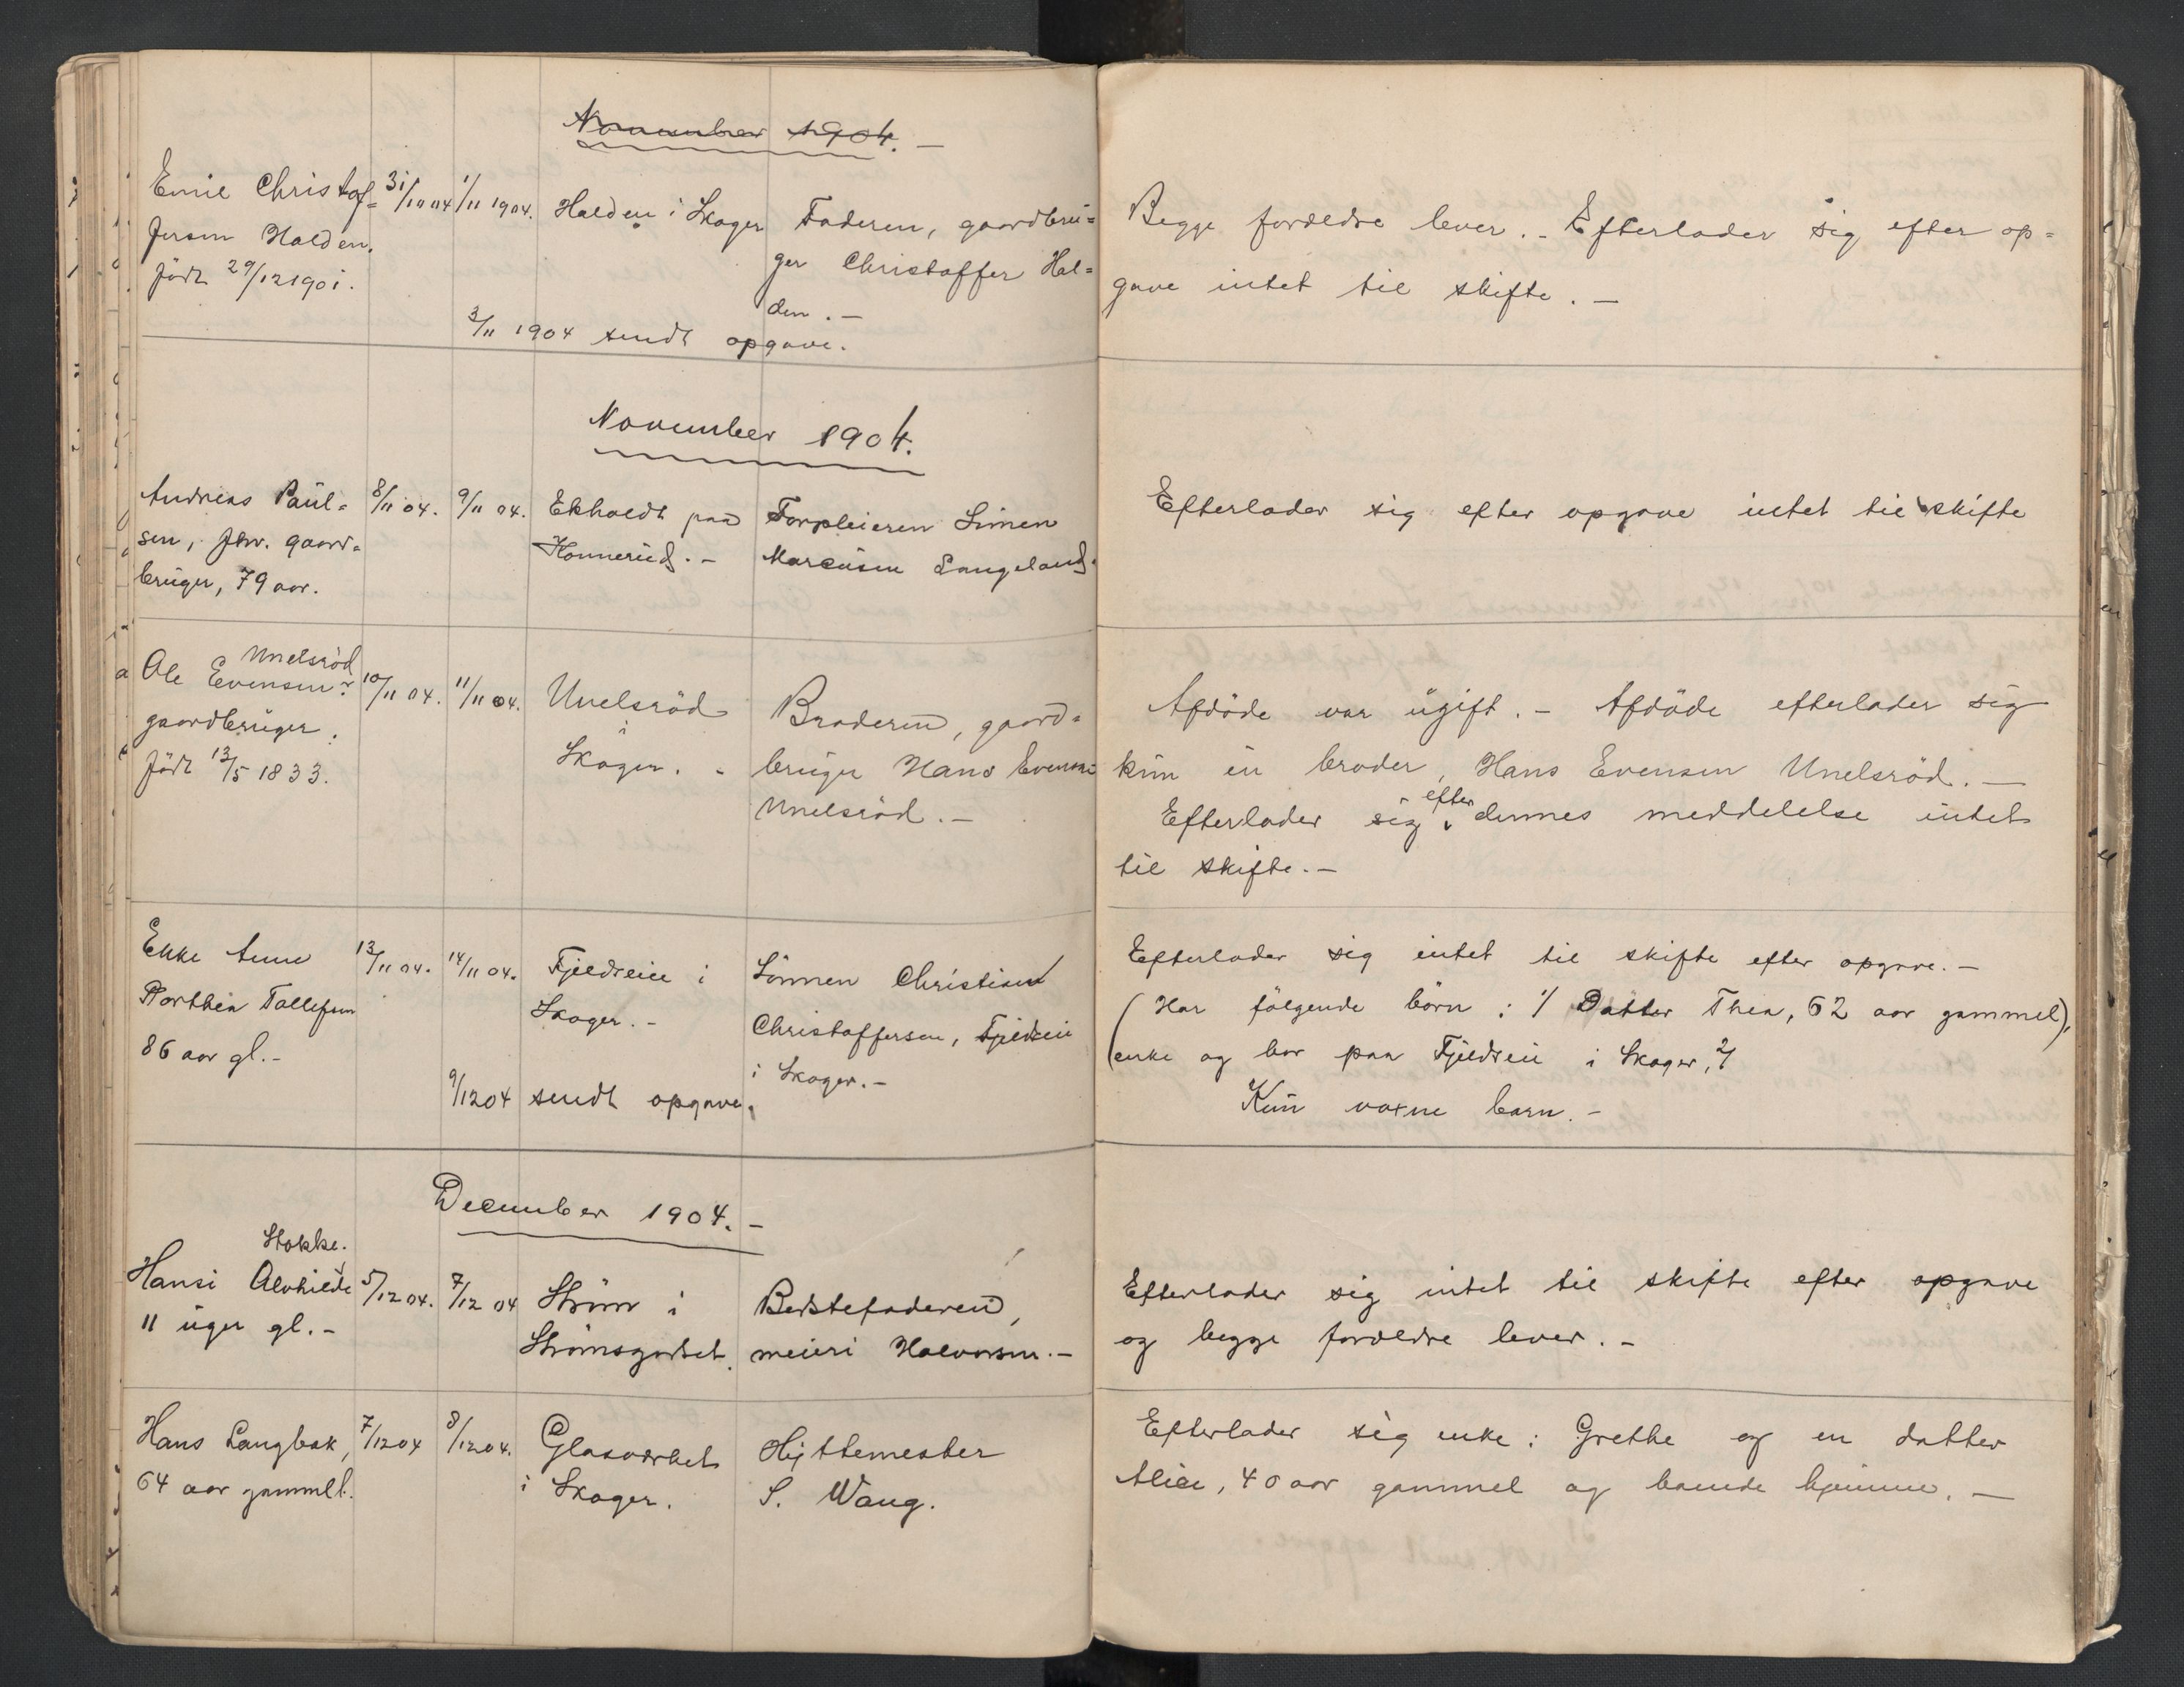 November 1904. -
Emil Christof=
fersen Halden.
født 29/12 1901.
31/10 04
1/11 1904.
Halden i Skoger
Faderen, gaardbru=
ger Christoffer Hal=
den. -
3/11 1904 sendt opgave.
Begge forældre lever. - Efterlader sig efter op=
gave intet til skifte. -
November 1904.
Andreas Paul=
sen, fhv. gaard=
bruger, 79 aar.
8/11 04.
9/11 04.
Ekholdt paa
Konnerud. -
Forpleieren Simen
Marcusen Langeland.
Efterlader sig efter opgave intet til skifte
Unelsrød
Ole Evensen
gaardbruger.
født 13/5 1833.
10/11 04.
11/11 04.
Unelsrød
i
Skoger. -
Broderen, gaard=
bruger Hans Evensen
Unelsrød. -
Afdøde var ugift. - Afdøde efterlader sig
kun en broder, Hans Evensen Unelsrød. -
Efterlader sig efter dennes meddelelse intet
til skifte. -
Enke Anne
Dorthea Tollefsen
86 aar gl. -
13/11 04.
14/11 04.
Fjeldseie i
Skoger. -
Sønnen Christian
Christoffersen, Fjeldseie
i Skoger. -
9/12 04 sendt opgave.
Efterlader sig intet til skifte efter opgave. -
(Har følgende børn: 1/ Datter Thea, 62 aar gammel),
(enke og bor paa Fjeldseie i Skoger, 2/
Kun voxne barn. -
December 1904. -
Stokke.
Hansi Alvhilde
11 uger gl. -
5/12 04.
7/12 04
Strøm i
Strømsgodset.
Bedstefaderen,
meieri Halvorsen. -
Efterlader sig intet til skifte efter opgave
og begge forældre lever. -
Hans Langbak,
64 aar gammel.
7/12 04
8/12 04.
Glasværket
i Skoger.
Hyttemester
S. Wang.
Efterlader sig enke: Grethe og en datter
Alice, 40 aar gammel og boende hjemme. -